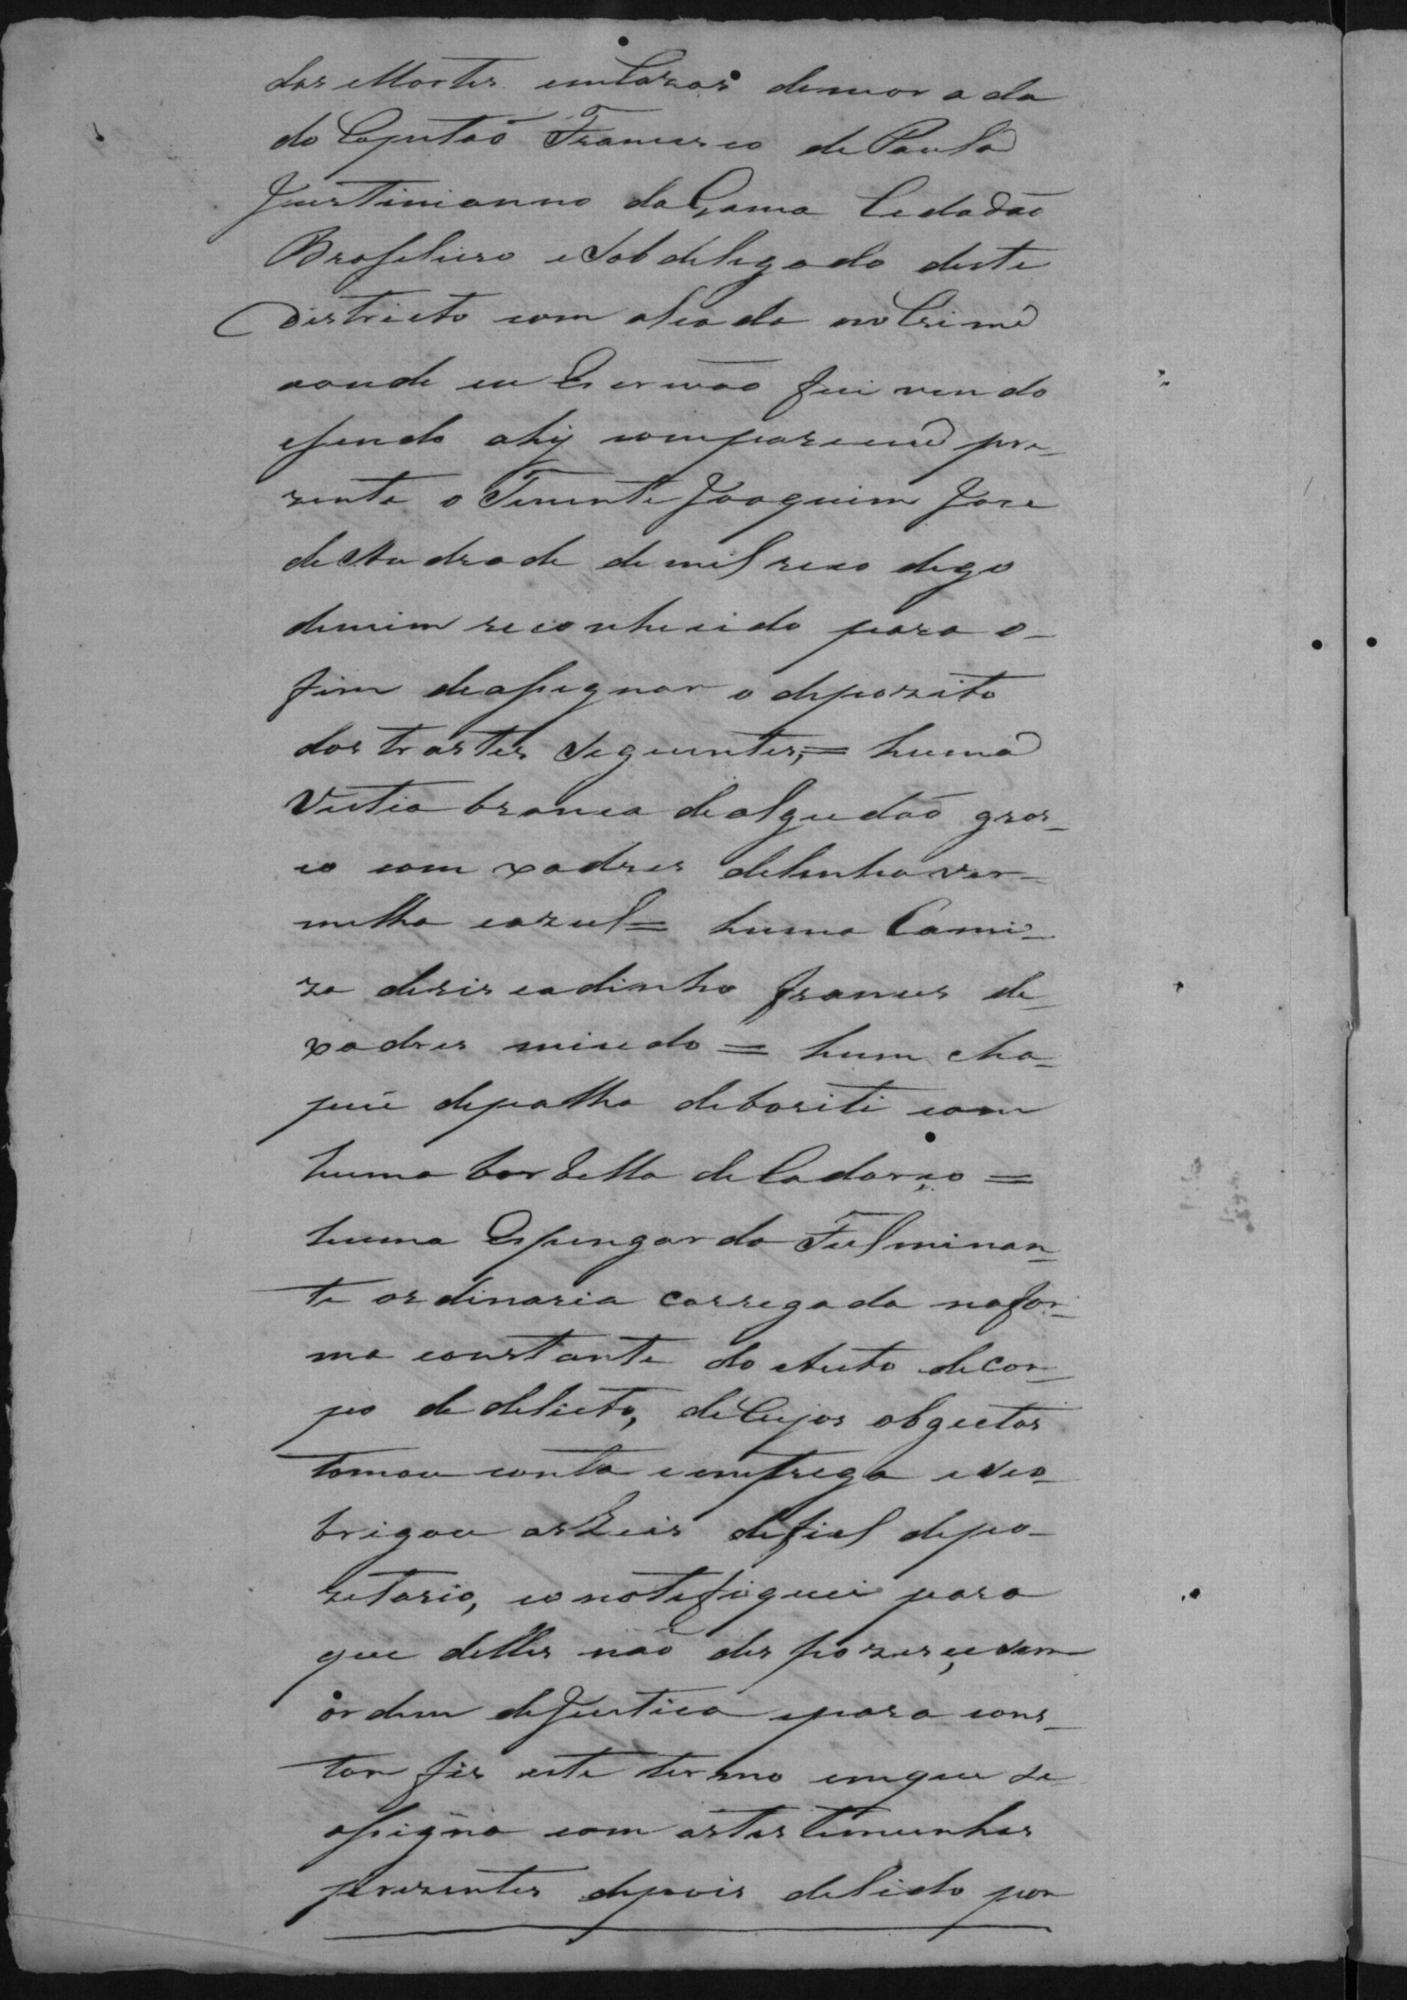 das Mortes em Cazas de morada
do Capitão Francisco de Paula
Justinianno da Gama Cidadão
Brasileiro e Sobdelegado deste
Districto com alsada no Crime
aonde eu Escrivão fui vindo
esendo ahy compareceu pre-
zente o Tenente Joaquim Jose
de Andrade de mil reco digo
demim reconhecido para o-
fim deassignar o depozito
dos trastes Seguintes, = huma
Vestia branca dealgudão gros-
co com xadres delinha ver-
melha eazul = huma Cami-
za deriscadinho frances de-
xadres miudo = hum cha-
peu depalha deboriti com
huma borbella de Cadarço =
huma Espingarda Fulminan-
te ordinaria carregada nafor-
ma constante do Auto decor-
po de delicto, de Cujos obgectos
tomou conta e emtrega eseo-
brigou as Leis defiel depo-
zetario, eo notefiquei para
que delles não despozesse, sem
ordem deJustica epara cons-
tar fis este termo emque se
assigna com as testemunhas
prezentes depois delido por